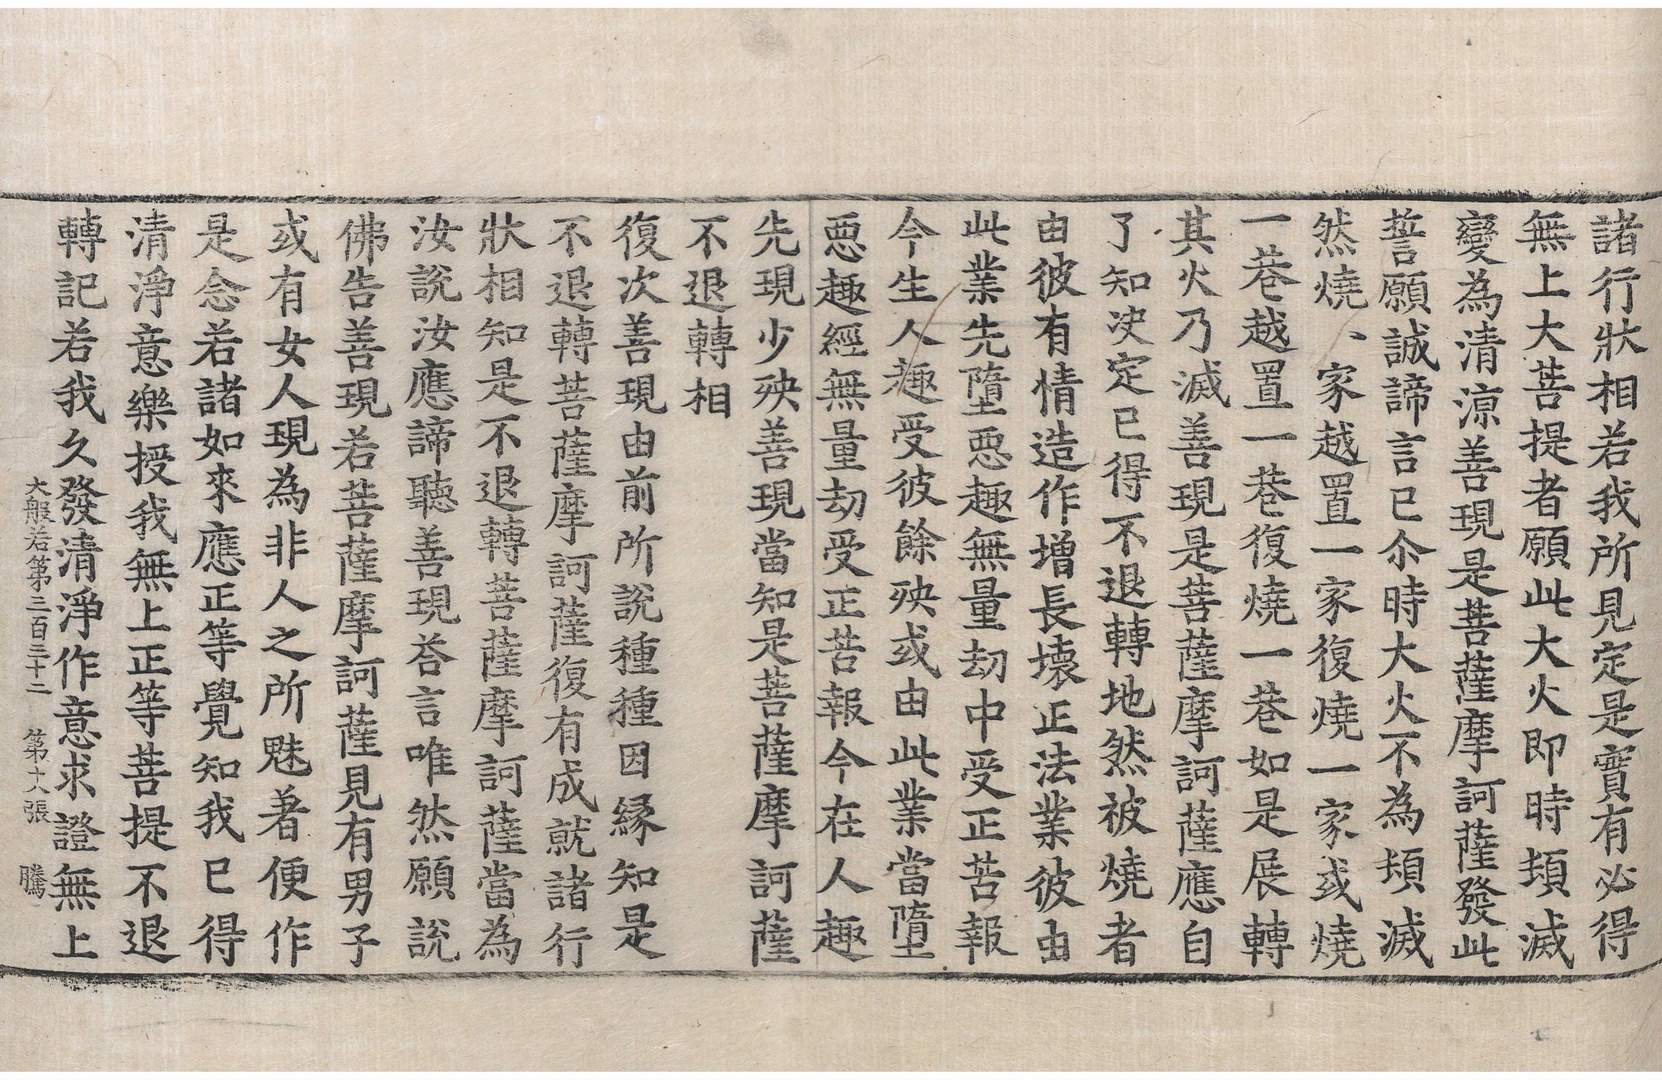 諸行狀相若我所見定是實有必得
無上大菩提者願此大火即時頓滅
變為清涼善現是菩薩摩訶薩發此
誓願誠諦言已尒時大火不為頓滅
然燒一家越置一家復燒一家或燒
一巷越置一巷復燒一巷如是展轉
其火乃滅善現是菩薩摩訶薩應自
了知决定已得不退轉地然被燒者
由彼有情造作增長壞正法業彼由
此業先墮惡趣無量劫中受正苦報
今生人趣受彼餘殃或由此業當墮
惡趣經無量劫受正苦報今在人趣
先現少殃善現當知是菩薩摩訶薩
不退轉相
復次善現由前所說種種因緣知是
不退轉菩薩摩訶薩復有成就諸行
狀相知是不退轉菩薩摩訶薩當為
汝說汝應諦聽善現荅言唯然願說
佛告善現若菩薩摩訶薩見有男子
或有女人現為非人之所魅著便作
是念若諸如來應正等覺知我已得
清淨意樂授我無上正等菩提不退
轉記若我久發清淨作意求證無上
大般若第三百三十二　第十八張　騰